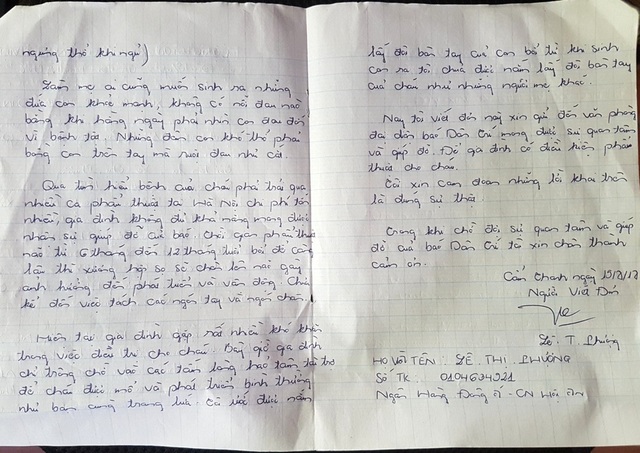 ngừng thở khi ngủ)
Làm mẹ ai cũng muốn sinh ra những
đứa con khỏe mạnh, không có nỗi đau nào
bằng khi hàng ngày phải nhìn con đau đớn
vì bệnh tật. Nhưng đến con khó thở phải
bồng con trên tay mà ruột đau như cắt.
Qua tìm hiểu bệnh của cháu phải trải qua
nhiều ca phẫu thuật tại Hà Nội chi phí tốn
nhiều, gia đình không đủ khả năng mong được
nhận sự giúp đỡ của báo. Thời gian phẫu thuật
não từ 6 tháng đến 12 tháng tuổi bởi để càng
lâu thì xương hộp sọ sẽ chèn lên não gây
ảnh hưởng đến phát triển và vận động. Chưa
kể đến việc tách các ngón tay và ngón chân.
Hiện tại gia đình gặp rất nhiều khó khăn
trong việc điều trị cho cháu. Bây giờ gia đình
chỉ trông chờ vào các tấm lòng hảo tâm tài trợ
để cháu được mổ và phát triển bình thường
như bạn cùng trang lứa. Tôi ước được nắm
lấy đôi bàn tay của con bởi từ khi sinh
con ra tôi chưa được nắm lấy đôi bàn tay
của cháu như những người mẹ khác.
Nay tôi viết đơn này xin gửi đến văn phòng
đại diện báo Dân Trí mong được sự quan tâm
và giúp đỡ. Để gia đình có điều kiện phẫu
thuật cho cháu.
Tôi xin cam đoan những lời khai trên
là đúng sự thật.
Trong khi chờ đợi, sự quan tâm và giúp
đỡ của báo Dân Trí tôi xin chân thành
cảm ơn.
Cẩm Thanh ngày
Người Viết Đơn
Lê. T. Phương
HỌ VÀ TÊN: LÊ. THỊ. PHƯƠNG
Số TK: 0104694921
Ngân Hàng Đông Á - CN Hội An